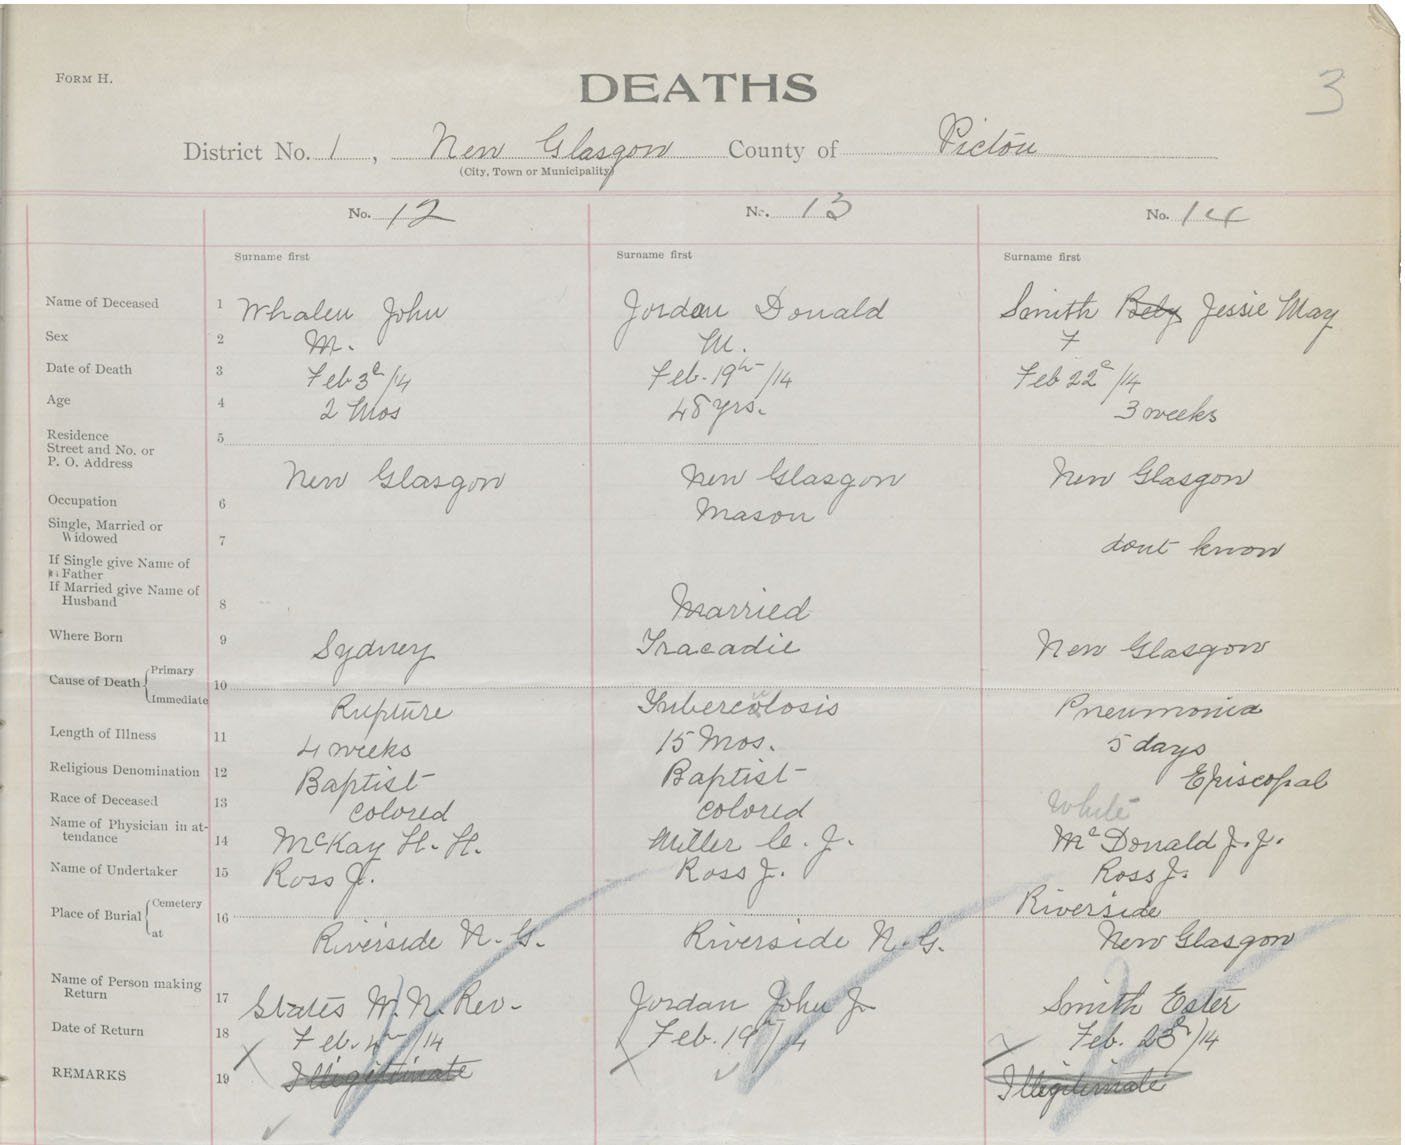 FORM H.
DEATHS
3
District No. 1, New Glasgow County of Pictou
(City, Town or Municipality)
No. 12 No. 13 No. 14
Surname first Surname first Surname first
Name of Deceased 1 Whalen John Jordan Donald Smith Jessie May
Sex 2 M. M. F
Date of Death 3 Feb 3d/14 Feb. 19th/14 Feb 22d/14
Age 4 2 Mos 48 yrs. 3 weeks
Residence
Street and No. or
P. O. Address 5 New Glasgow New Glasgow New Glasgow
Occupation 6 Mason
Single, Married or
Widowed 7 dont know
If Single give Name of
Father
If Married give Name of
Husband 8 Married
Where Born 9 Sydney Tracadie New Glasgow
Cause of Death Primary
Immediate 10 Rupture Tuberculosis Pneumonia
Length of Illness 11 4 weeks 15 Mos. 5 days
Religious Denomination 12 Baptist Baptist Episcopal
Race of Deceased 13 colored colored White
Name of Physician in at-
tendance 14 McKay H. H. Miller C. J. McDonald J. J.
Name of Undertaker 15 Ross J. Ross J. Ross J.
Place of Burial Cemetery Riverside
at 16 Riverside N. G. Riverside N. G. New Glasgow
Name of Person making
Return 17 States W. N. Rev. Jordan John J. Smith Ester
Date of Return 18 Feb. 4th/14 Feb. 19th/14 Feb. 23d/14
REMARKS 19 Illegitimate Illegitimate